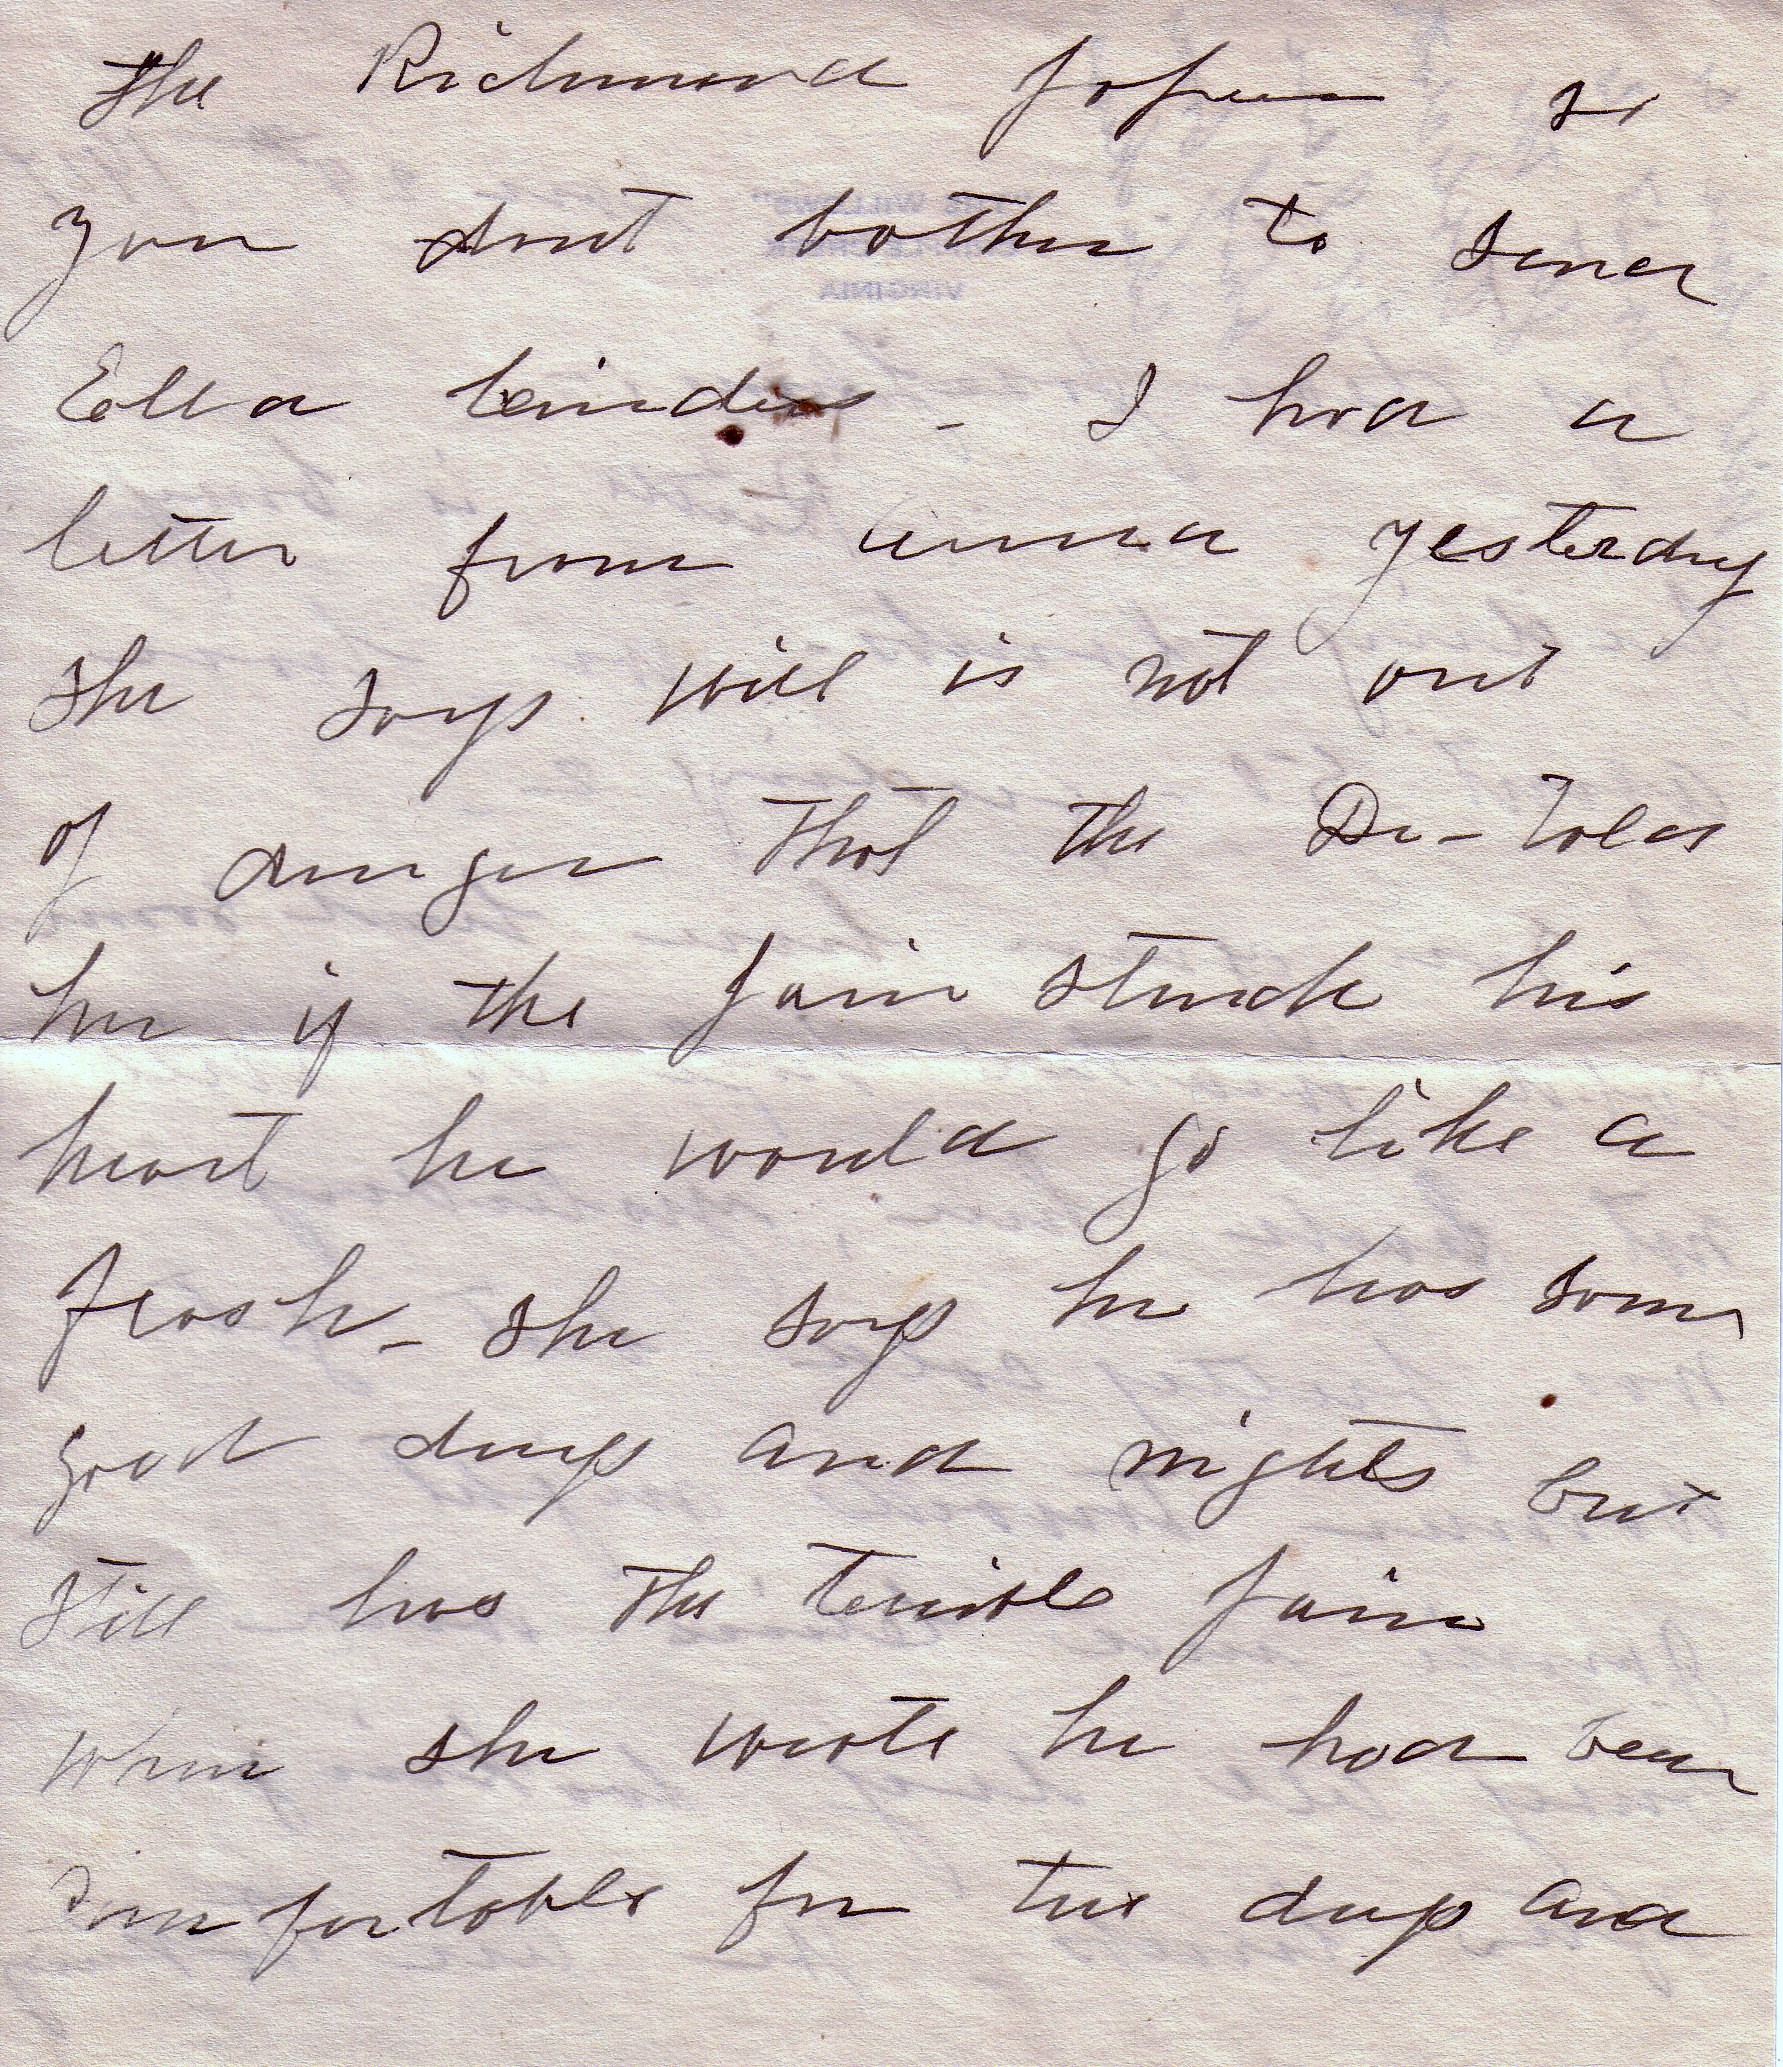 the Richmond papers so
you dont bother to send
Ella - I had a
letter from Anna yesterday
she says Will is not out
of danger that the Dr - told
her if the pain struck his
heart he would go like a
flash - she says he has some
good days and nights but
still has the terrible pain
when she wrote he had been
comfortable for two days and